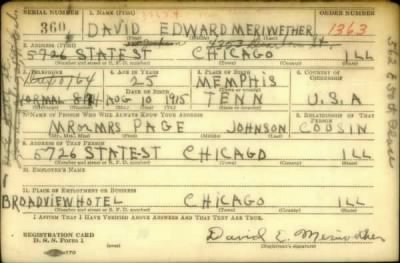 SERIAL NUMBER 1. NAME (Print) ORDER NUMBER
360 DAVID EDWARD MERIWETHER 1363
(First) (Middle) (Last)
2. ADDRESS (Print)
5726 STATE ST CHICAGO ILL
(Number and street or R. F. D. number) (Town) (County) (State)
3. TELEPHONE 4. AGE IN YEARS 5. PLACE OF BIRTH 6. COUNTRY OF CITIZENSHIP
25 MEMPHIS
NORMAL AUG 10 1915 TENN U.S.A
7. NAME OF PERSON WHO WILL ALWAYS KNOW YOUR ADDRESS 8. RELATIONSHIP OF THAT PERSON
MR or MRS PAGE JOHNSON COUSIN
(Mr., Mrs., Miss) (First) (Middle) (Last)
9. ADDRESS OF THAT PERSON
5726 STATE ST CHICAGO ILL
(Number and street or R. F. D. number) (Town) (County) (State)
10. EMPLOYER'S NAME
11. PLACE OF EMPLOYMENT OR BUSINESS
BROADVIEW HOTEL CHICAGO ILL
(Number and street or R. F. D. number) (Town) (County) (State)
I AFFIRM THAT I HAVE VERIFIED ABOVE ANSWERS AND THAT THEY ARE TRUE.
REGISTRATION CARD
D. S. S. Form 1
David E. Meriwether
(Registrant's signature)